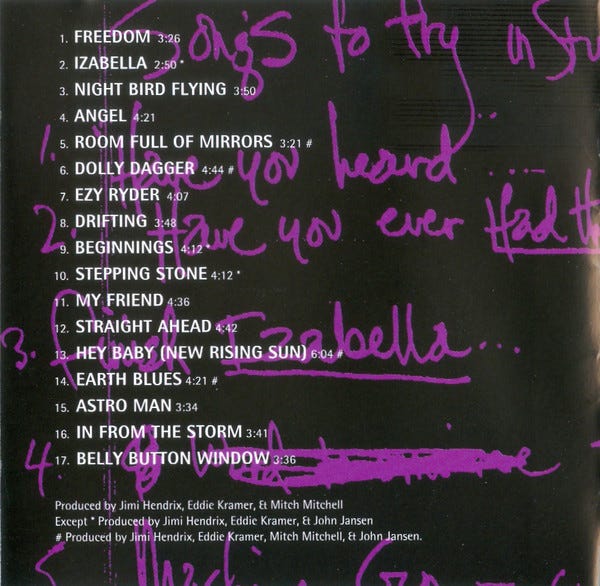 Songs to try
1. FREEDOM 3:26
2. IZABELLA 2:50 *
3. NIGHT BIRD FLYING 3:50
4. ANGEL 4:21
5. ROOM FULL OF MIRRORS 3:21 #
6. DOLLY DAGGER 4:44 #
7. EZY RYDER 4:07
8. DRIFTING 3:48
9. BEGINNINGS 4:12 *
10. STEPPING STONE 4:12 *
11. MY FRIEND 4:36
12. STRAIGHT AHEAD 4:42
13. HEY BABY (NEW RISING SUN) 6:04 #
14. EARTH BLUES 4:21 #
15. ASTRO MAN 3:34
16. IN FROM THE STORM 3:41
17. BELLY BUTTON WINDOW 3:36
1. Have you heard ....
2. Have you ever Had
3. Finish Izabella...
4.
5.
Produced by Jimi Hendrix, Eddie Kramer, & Mitch Mitchell
Except * Produced by Jimi Hendrix, Eddie Kramer, & John Jansen
# Produced by Jimi Hendrix, Eddie Kramer, Mitch Mitchell, & John Jansen.